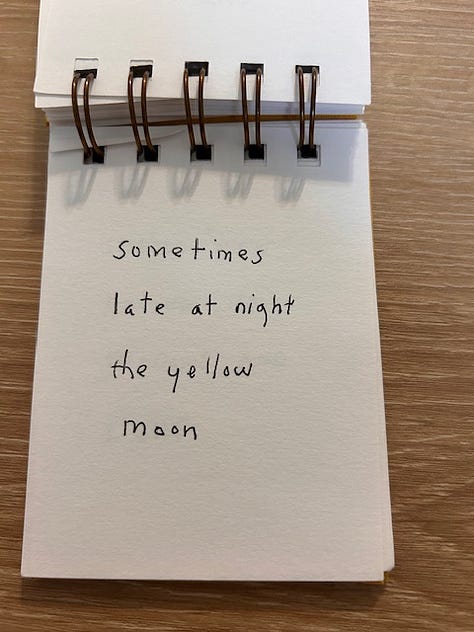 sometimes
late at night
the yellow
moon